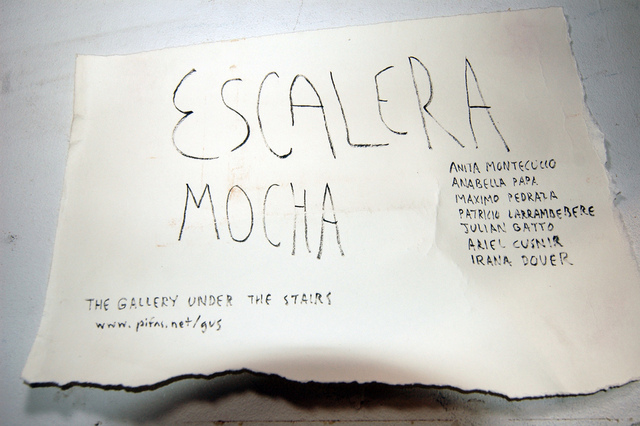 ESCALERA
MOCHA
ANITA MONTECUCCO
ANABELLA PAPA
MAXIMO PEDRAZA
PATRICIO LARRAMBEBERE
JULIAN GATTO
ARIEL CUSNIR
IRANA DOUER
THE GALLERY UNDER THE STAIRS